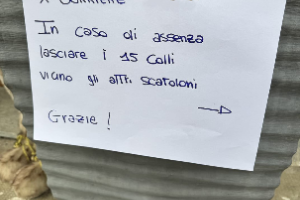 In caso di assenza
lasciare i 15 colli
vicino gli altri scatoloni
Grazie!